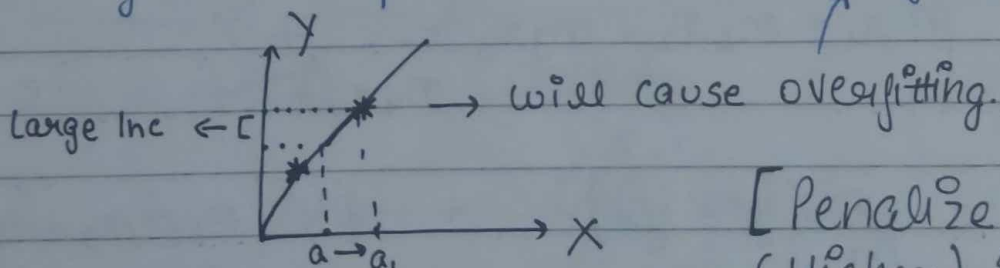 y
large Inc ← [ → will cause overfitting.
X
a → a₁
[Penalize